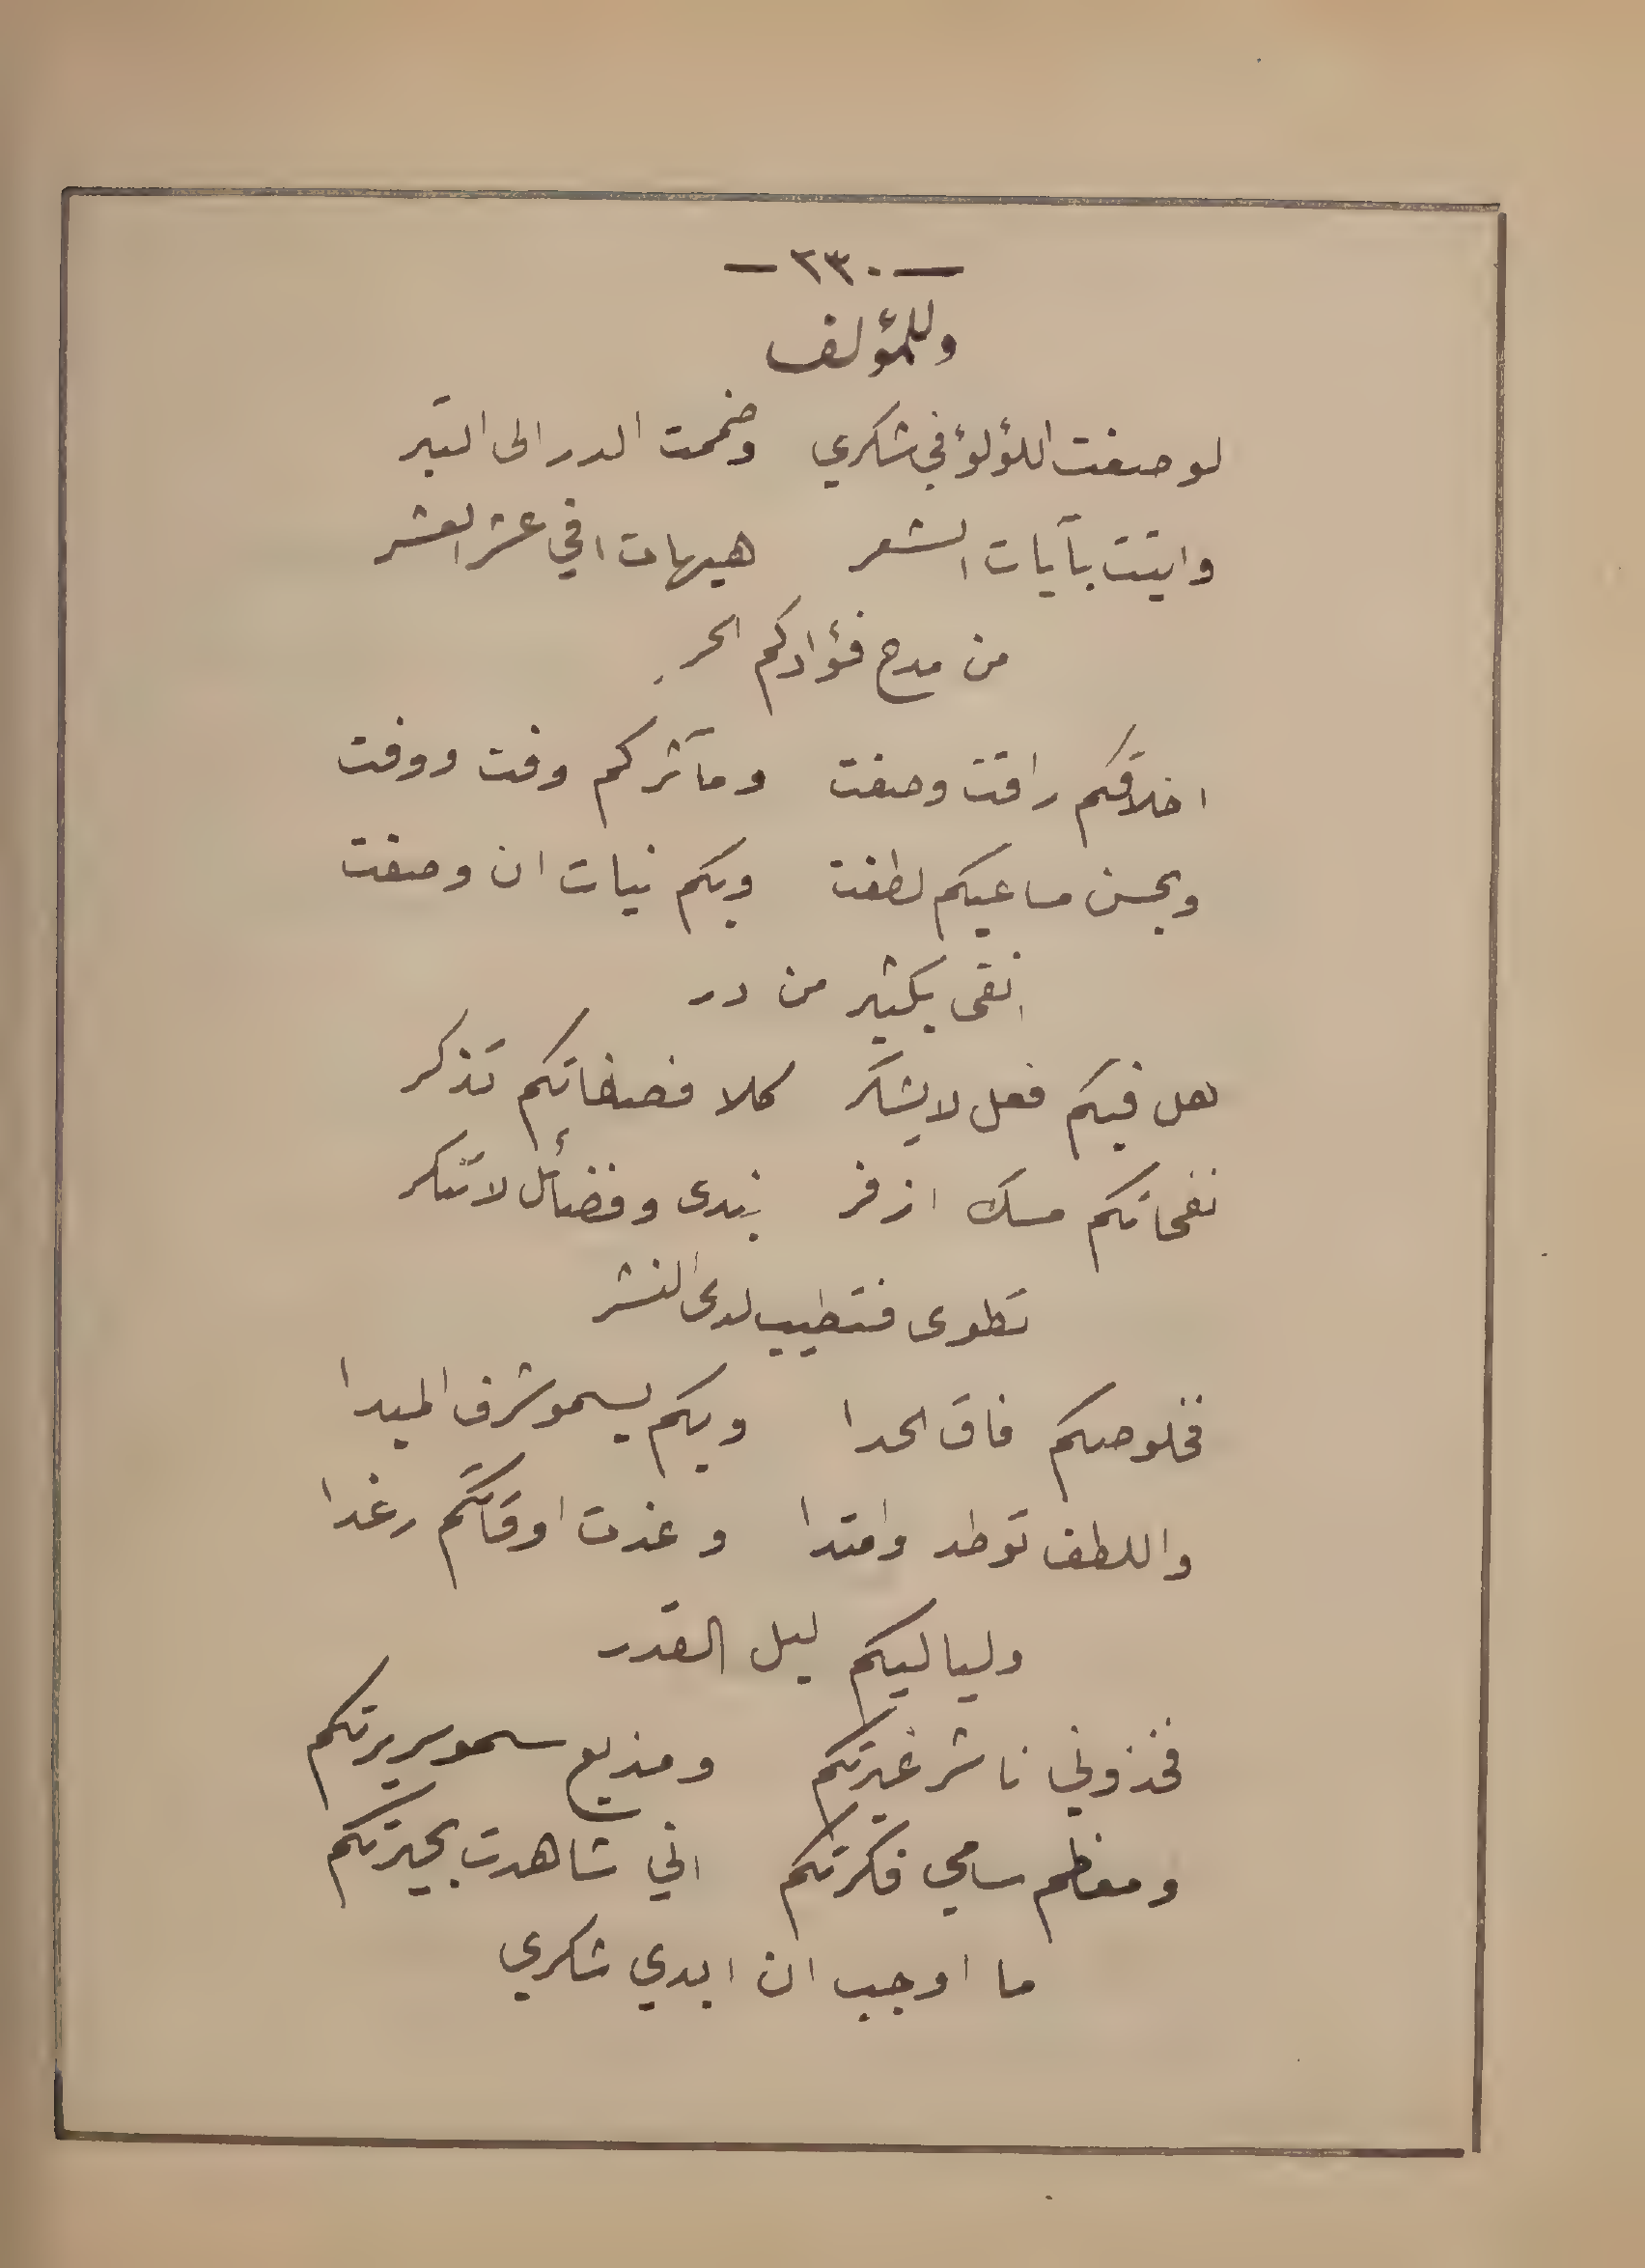 — ٢٣٠ —
وللمؤلف
لو صغت اللؤلؤ في شكري وضممت الدر الى التبر
واتيت بآيات الشعر هيهات افي عشر العشر
من مدح فؤادكم الحر
اخلاقكم راقت وصفت ومآثركم وفت ووفت
وبحسن مساعيكم لطفت وبكم نيات ان وصفت
انقى بكثير من در
هل فيكم فعل لايشكر كلا فصفاتكم تذكر
نفحاتكم مسك ازفر بندى وفضائل لاتنكر
تطوى فتطيب لدى النشر
فخلوصكم فاق الحدا وبكم يسمو شرف المبدا
واللطف توطد وامتدا وغدت اوقاتكم رغدا
ولياليكم ليل القدر
فخذوني ناشر غيرتكم ومذيع سمو سريرتكم
ومعظم سامي فكرتكم اني شاهدت بحيرتكم
ما اوجب ان ابدي شكري